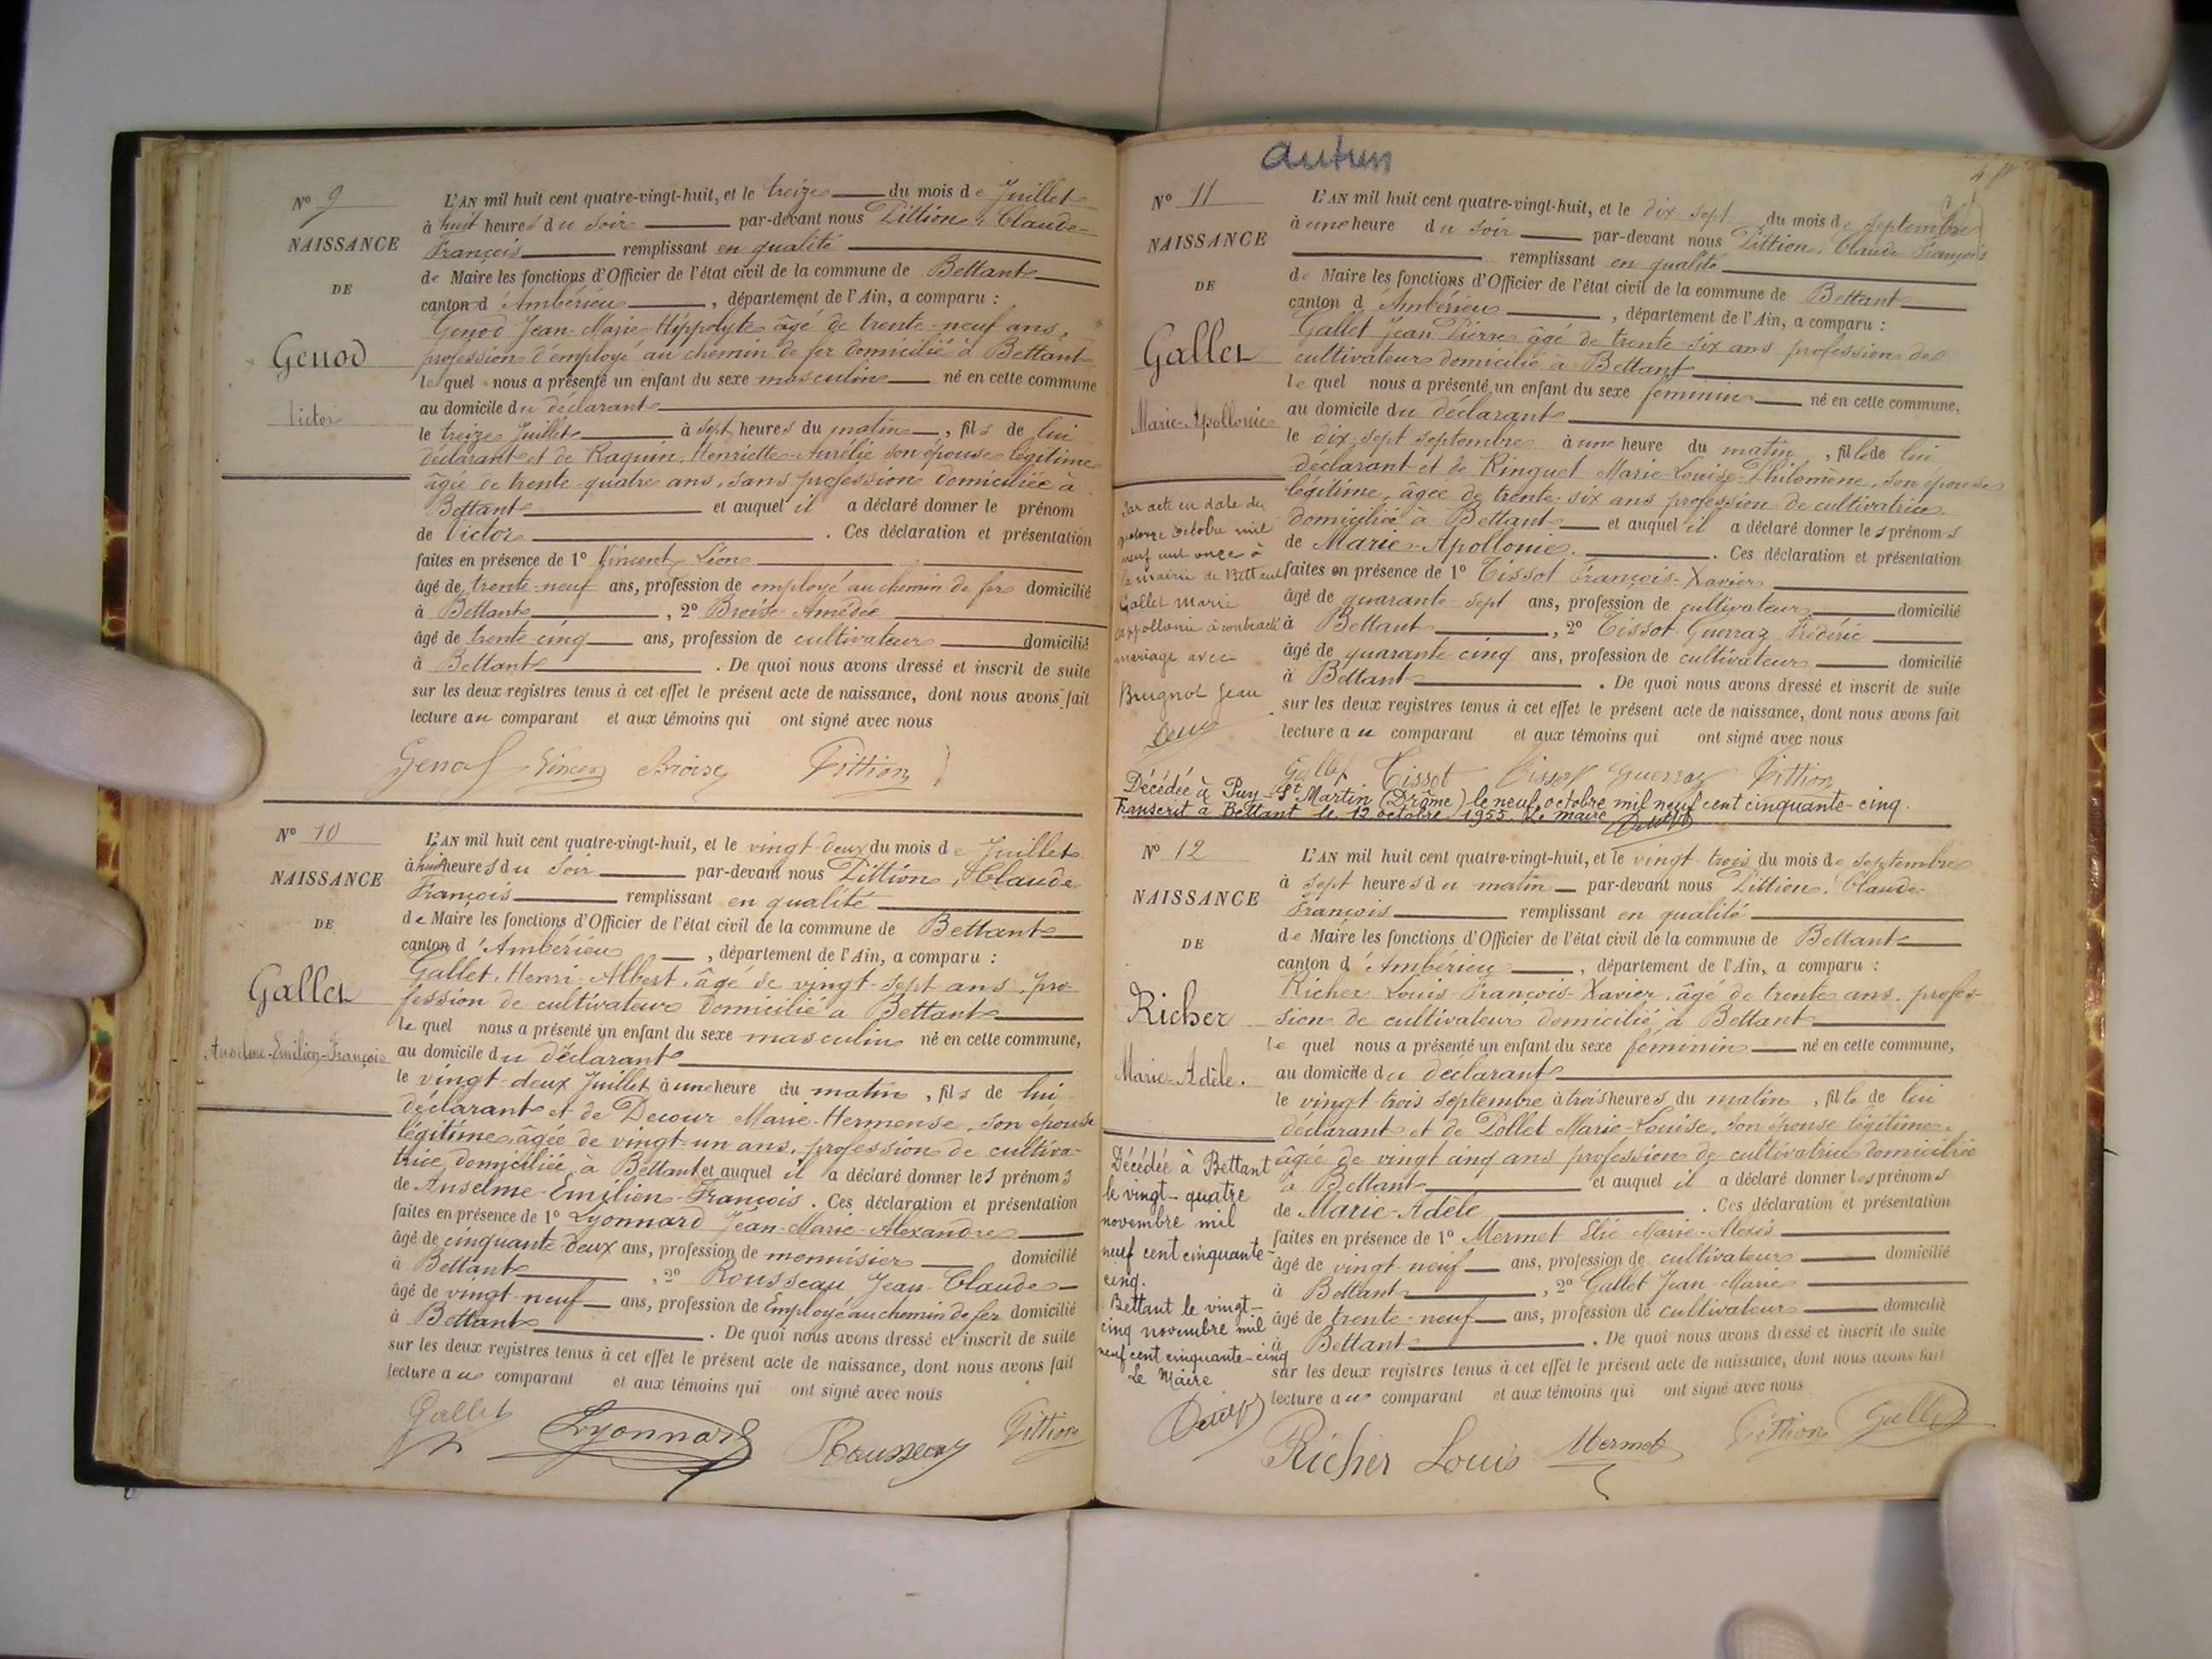 Nº 9
NAISSANCE
DE
Genod
Victor
L'AN mil huit cent quatre-vingt-huit, et le treize du mois de Juillet
à huit heures du soir par-devant nous Pittion, Claude-
François remplissant en qualité
de Maire les fonctions d'Officier de l'état civil de la commune de Bettant
canton d'Ambérieu, département de l'Ain, a comparu :
Genod Jean-Marie-Hippolyte âgé de trente-neuf ans,
profession d'employé au chemin de fer domicilié à Bettant
lequel nous a présenté un enfant du sexe masculin né en cette commune
au domicile du déclarant
le treize Juillet à sept heures du matin, fils de lui
déclarant et de Raquin, Henriette-Aurélie son épouse légitime
âgée de trente-quatre ans, sans profession domiciliée à
Bettant et auquel il a déclaré donner le prénom
de Victor. Ces déclaration et présentation
faites en présence de 1º Vincent Léon
âgé de trente-neuf ans, profession de employé au chemin de fer domicilié
à Bettant, 2º Broise Amédée
âgé de trente-cinq ans, profession de cultivateur domicilié
à Bettant. De quoi nous avons dressé et inscrit de suite
sur les deux registres tenus à cet effet le présent acte de naissance, dont nous avons fait
lecture au comparant et aux témoins qui ont signé avec nous
Genod Vincent Broise Pittion
Nº 10
NAISSANCE
DE
Gallet
Anselme-Emilien-François
L'AN mil huit cent quatre-vingt-huit, et le vingt-deux du mois de Juillet
à huit heures du soir par-devant nous Pittion, Claude
François remplissant en qualité
de Maire les fonctions d'Officier de l'état civil de la commune de Bettant
canton d'Ambérieu, département de l'Ain, a comparu :
Gallet, Henri-Albert, âgé de vingt-sept ans, pro-
fession de cultivateur domicilié à Bettant
lequel nous a présenté un enfant du sexe masculin né en cette commune,
au domicile du déclarant
le vingt-deux Juillet à une heure du matin, fils de lui
déclarant et de Decour Marie-Hermense, son épouse
légitime, âgée de vingt-un ans, profession de cultiva-
trice, domiciliée à Bettant et auquel il a déclaré donner les prénoms
de Anselme-Emilien-François. Ces déclaration et présentation
faites en présence de 1º Lyonnard Jean-Marie-Alexandre
âgé de cinquante-deux ans, profession de menuisier domicilié
à Bettant, 2º Rousseau Jean-Claude
âgé de vingt-neuf ans, profession de Employé au chemin de fer domicilié
à Bettant. De quoi nous avons dressé et inscrit de suite
sur les deux registres tenus à cet effet le présent acte de naissance, dont nous avons fait
lecture au comparant et aux témoins qui ont signé avec nous
Gallet Lyonnard Rousseau Pittion
autun
Nº 11
NAISSANCE
DE
Gallet
Marie-Apollonie
L'AN mil huit cent quatre-vingt-huit, et le dix-sept du mois de septembre
à une heure du soir par-devant nous Pittion, Claude François
remplissant en qualité
de Maire les fonctions d'Officier de l'état civil de la commune de Bettant
canton d'Ambérieu, département de l'Ain, a comparu :
Gallet Jean Pierre âgé de trente-six ans profession de
cultivateur domicilié à Bettant
lequel nous a présenté un enfant du sexe féminin né en cette commune,
au domicile du déclarant
le dix-sept septembre à une heure du matin, fille de lui
déclarant et de Ringuet Marie-Louise-Philomène, son épouse
légitime, âgée de trente-six ans profession de cultivatrice
domiciliée à Bettant et auquel il a déclaré donner les prénoms
de Marie-Apollonie. Ces déclaration et présentation
faites en présence de 1º Tissot François-Xavier
âgé de quarante-sept ans, profession de cultivateur domicilié
à Bettant, 2º Tissot-Guerraz Frédéric
âgé de quarante-cinq ans, profession de cultivateur domicilié
à Bettant. De quoi nous avons dressé et inscrit de suite
sur les deux registres tenus à cet effet le présent acte de naissance, dont nous avons fait
lecture au comparant et aux témoins qui ont signé avec nous
Gallet Tissot Tissot Guerraz Pittion
Par acte en date du
quatorze octobre mil
neuf cent onze à
la mairie de Bettant
Gallet Marie
Appollonie à contracté
mariage avec
Brugnot Jean
Décédée à Puy-St Martin (Drôme) le neuf octobre mil neuf cent cinquante-cinq.
Transcrit à Bettant le 12 octobre 1955. Le maire
Nº 12
NAISSANCE
DE
Richer
Marie-Adèle.
L'AN mil huit cent quatre-vingt-huit, et le vingt-trois du mois de septembre
à sept heures du matin par-devant nous Pittion, Claude-
François remplissant en qualité
de Maire les fonctions d'Officier de l'état civil de la commune de Bettant
canton d'Ambérieu, département de l'Ain, a comparu :
Richer Louis-François-Xavier, âgé de trente ans, profes-
sion de cultivateur domicilié à Bettant
lequel nous a présenté un enfant du sexe féminin né en cette commune,
au domicile du déclarant
le vingt-trois septembre à trois heures du matin, fille de lui
déclarant et de Pollet Marie-Louise, son épouse légitime,
âgée de vingt cinq ans profession de cultivatrice domiciliée
à Bettant et auquel il a déclaré donner les prénoms
de Marie-Adèle. Ces déclaration et présentation
faites en présence de 1º Mermet Elie Marie-Alexis
âgé de vingt-neuf ans, profession de cultivateur domicilié
à Bettant, 2º Gallet Jean-Marie
âgé de trente-neuf ans, profession de cultivateur domicilié
à Bettant. De quoi nous avons dressé et inscrit de suite
sur les deux registres tenus à cet effet le présent acte de naissance, dont nous avons fait
lecture au comparant et aux témoins qui ont signé avec nous
Richer Louis Mermet Pittion Gallet
Décédée à Bettant
le vingt-quatre
novembre mil
neuf cent cinquante-
cinq.
Bettant le vingt-
cinq novembre mil
neuf cent cinquante-cinq
Le Maire